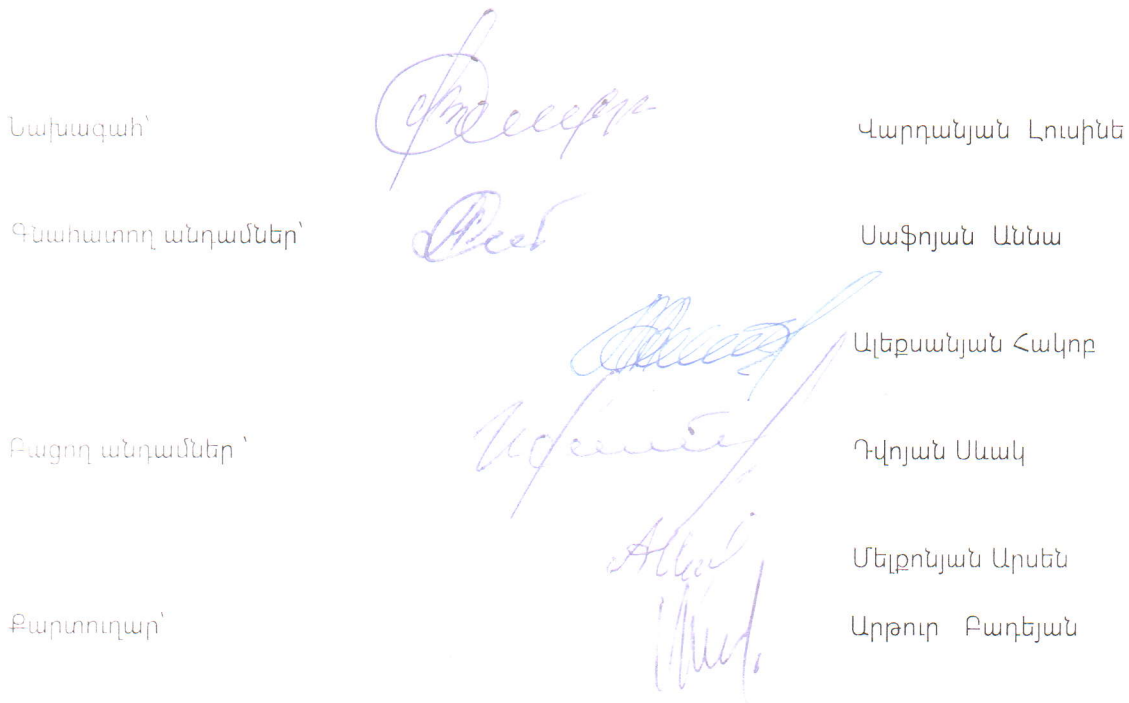 Նախագահ՝ Վարդանյան Լուսինե
Գնահատող անդամներ՝ Սաֆոյան Աննա
Ալեքսանյան Հակոբ
Բացող անդամներ ՝ Դվոյան Սևակ
Մելքոնյան Արսեն
Քարտուղար՝ Արթուր Բադեյան